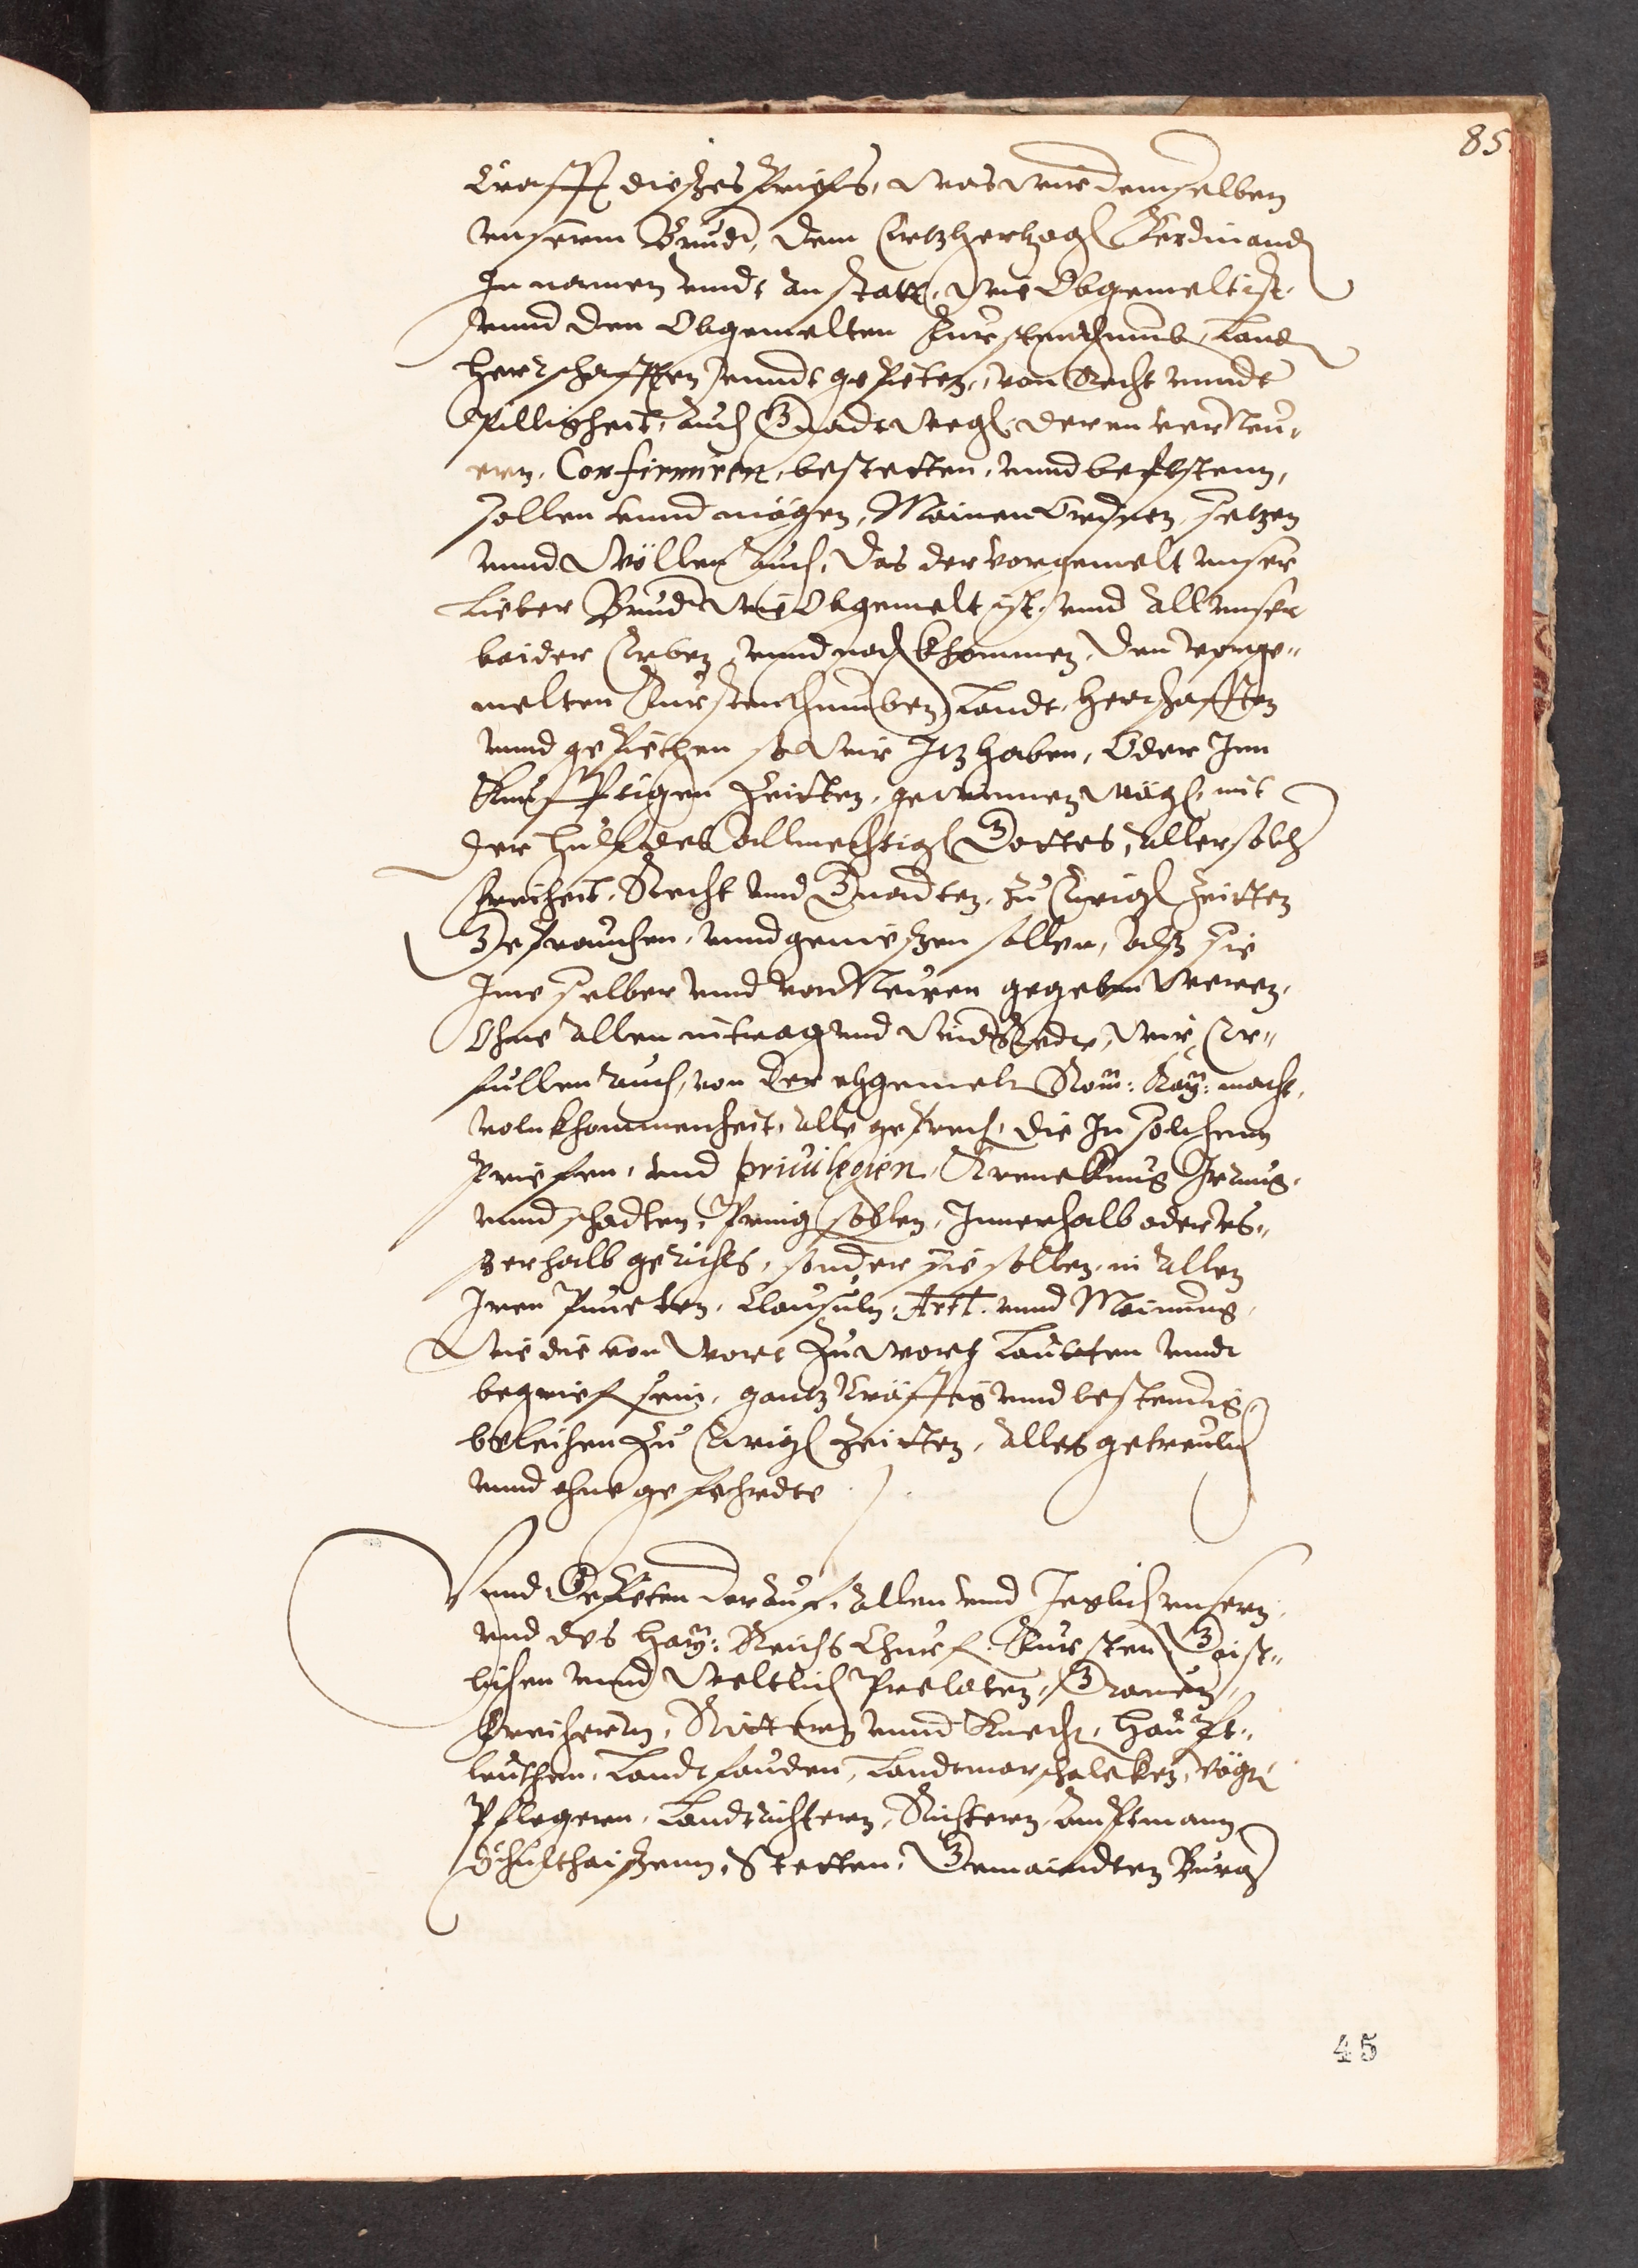 85.
Crafft dieszes Briefs, was wir demselben
vnserm Brud, dem Ertzhertzog Ferdinand
In namen vnndt an statt, wie Obgemelt ist,
vnnd den Obgemelten Furstenthumb, Land
Herrschafften vnndt gepieten, von Recht vnndt
Pilligheit, auch Gnadt wegen, deren verNeu,
ern, Confirmiren, bestetten, vnnd befesten,
sollen vnnd mögen, Mainen Ordnen, setzen
vnnd Wöllen auch, das der vorgemelt vnser
Lieber Brud wie Obgemelt ist, vnnd all vnser
baider Erben, vnnd nachkhommen, den vorge-
melten Furstenthumben, Landt, Herschafften
vnnd gepiethen so wir Itz haben, Oder Inn
Kunfftigen Zeitten, gewinnen mögen, mit
der Hulf des Allmechtigen Gottes, aller solch
Freiheit, Recht vnd Gnadten, zu Ewigen Zeitten
Geprauchen, vnnd genieszen sollen, Alsz sie
Ime selber vnnd von Neuen gegeben weren,
Ohne allen intrag vnd Widerrede, Wir Er-
fullen auch, von der ehgemelt Rom: Kay: macht,
volnkhommenheit, alle geprech, die In solchenn
Briefen, vnd priuilegien, Krenckung Irrung,
vnnd schadten, Pring sollen, Innerhalb oder Us-
serhalb gerichts, sonder sie sollen, in allen
Iren Puncten, Clausuln, Artl. vnnd Mainung,
wie die von wort Zu wort Lautten vnndt
begrief sein, gantz Kräfftig vnnd bestendig
bleiben Zu Ewigen Zeitten, Alles getreulich
vnnd ohne gefehrdte
Vnnd Gepieten darauf, Allen vnnd Jeglich vnsern,
vnd des Hay: Reichs Churf: Fursten Geist-
lichen vnnd Weltlich Prelaten, Grauen,
Freiherrn, Rittern vnnd Knecht, Haupt-
leuthen, Landtfauden, Landtmarschalcken, Vögt
Pflegern, Landrichtern, Richtern, Amptmann
Schulthaiszenn, Stetten, Gemaindten Burg
45